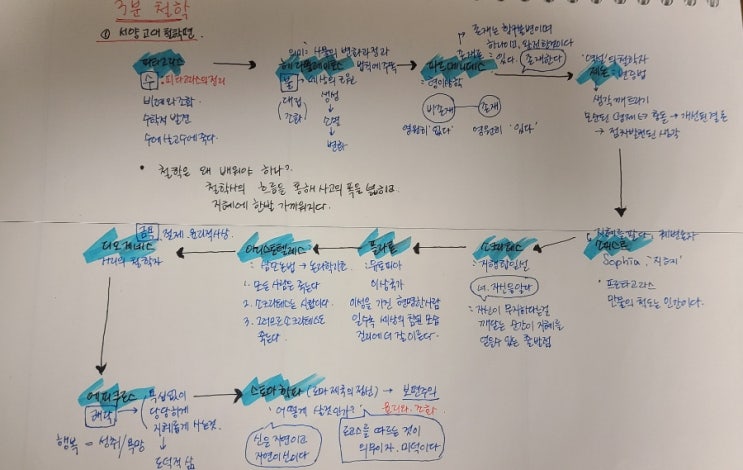 3분 철학
① 서양 고대 철학편.
피타고라스
수 : 피타고라스의 정리
비례와 조화
수학적 발견
수에 살고 수에 죽다.
의미: 사물의 변화과정과
헤라클레이토스 법칙에 주목
불 = 세상의 근원
대립 생성
(조화) ↓
소멸
↓
변화
존재는 학수불변이며
하나이고, 완전한것이다
파르메니데스 존재는 있다.
존재한다
: 영이야학
비존재 존재
영원히 '없다' 영원히 '있다'
'역설'의 철학자
제논 : 변증법
생각 깨뜨리기
→ 개선된 결론
→ 점차 발전된 생각
• 철학은 왜 배워야 하나?
철학사의 흐름을 통해 사고의 폭을 넓히고
지혜에 한발 가까워지다.
지혜를 팔다, 궤변론자
소피스트
Sophia, '지혜'
* 프로타고라스
만물의 척도는 인간이다.
소크라테스
: 지행합일선
너 자신을알라
: 자신이 무지하다는걸
깨닫는 순간이 지혜를
얻을수 있는 출발점
플라톤
: 유토피아
이상국가
이성을 가진 현명한사람
일수록 세상의 참된 모습
진리에 더 잘 이른다.
아리스토텔레스
: 삼단논법 → 논리학기초
1. 모든 사람은 죽는다
2. 소크라테스는 사람이다.
3. 그러므로 소크라테스도
죽는다.
금욕, 절제 윤리적사상.
디오게네스
거리의 철학자
에피쿠로스
쾌락 욕심없이
당당하게
지혜롭게 사는것.
행복 = 성취/욕망
↓
도덕적 삶
스토아 학파 (로마 제국의 정신) → 보편주의
'어떻게 살것인가?' 윤리와 조화
신은 자연이고
자연이 신이다
로고스를 따르는 것이
의무이자, 미덕이다